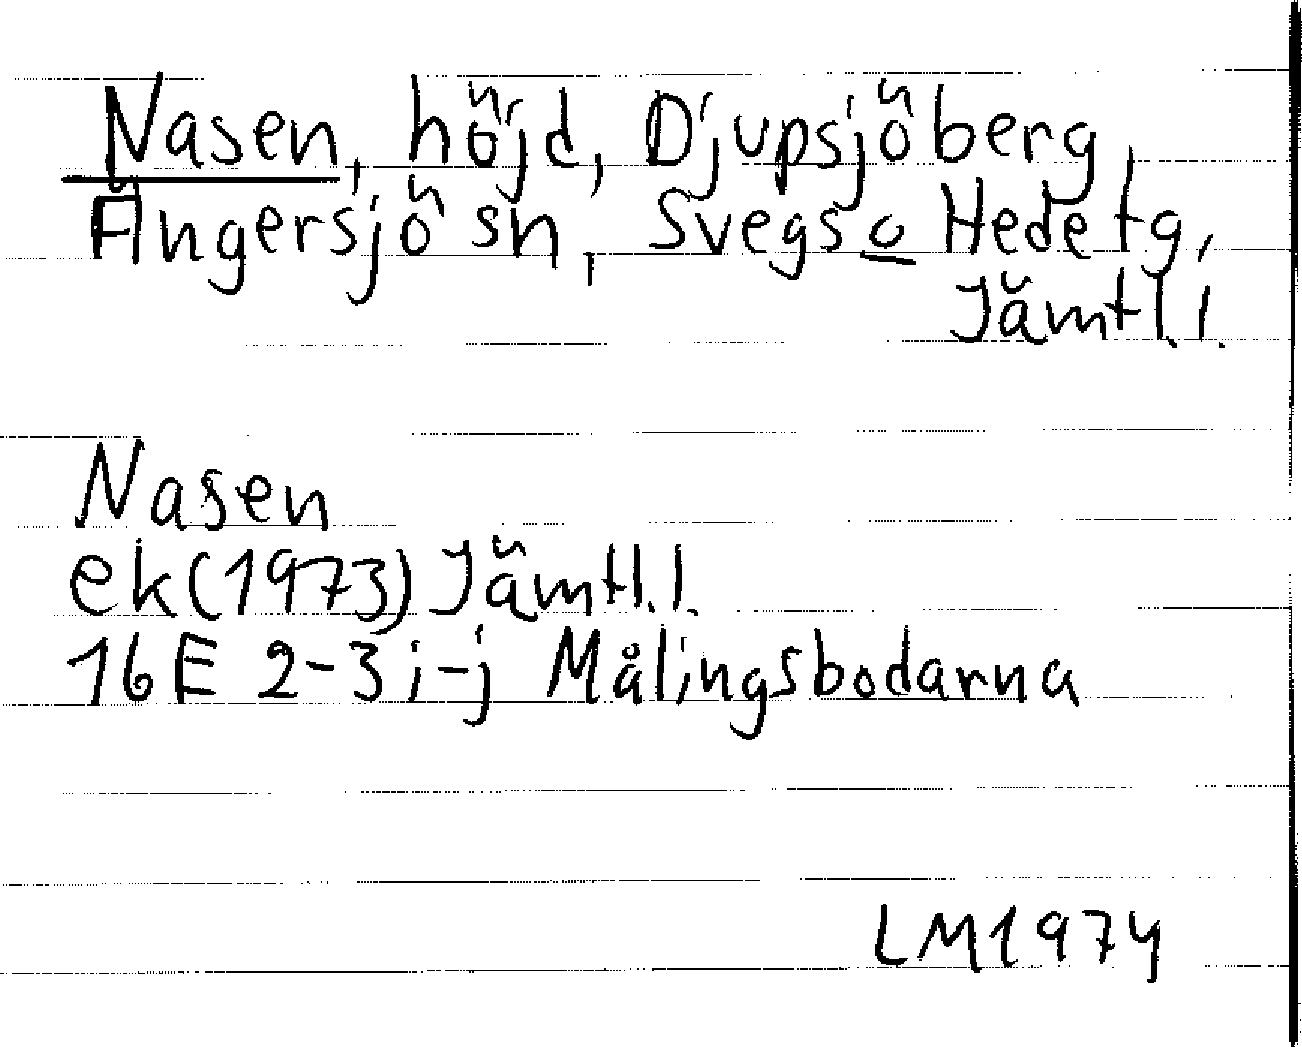 Nasen, höjd, Djupsjöberg,
Ängersjö sn, Svegs o Hede tg,
Jämtl.l.
Nasen
ek(1973) Jämtl.l.
16E 2-3 i-j Målingsbodarna
LM1974